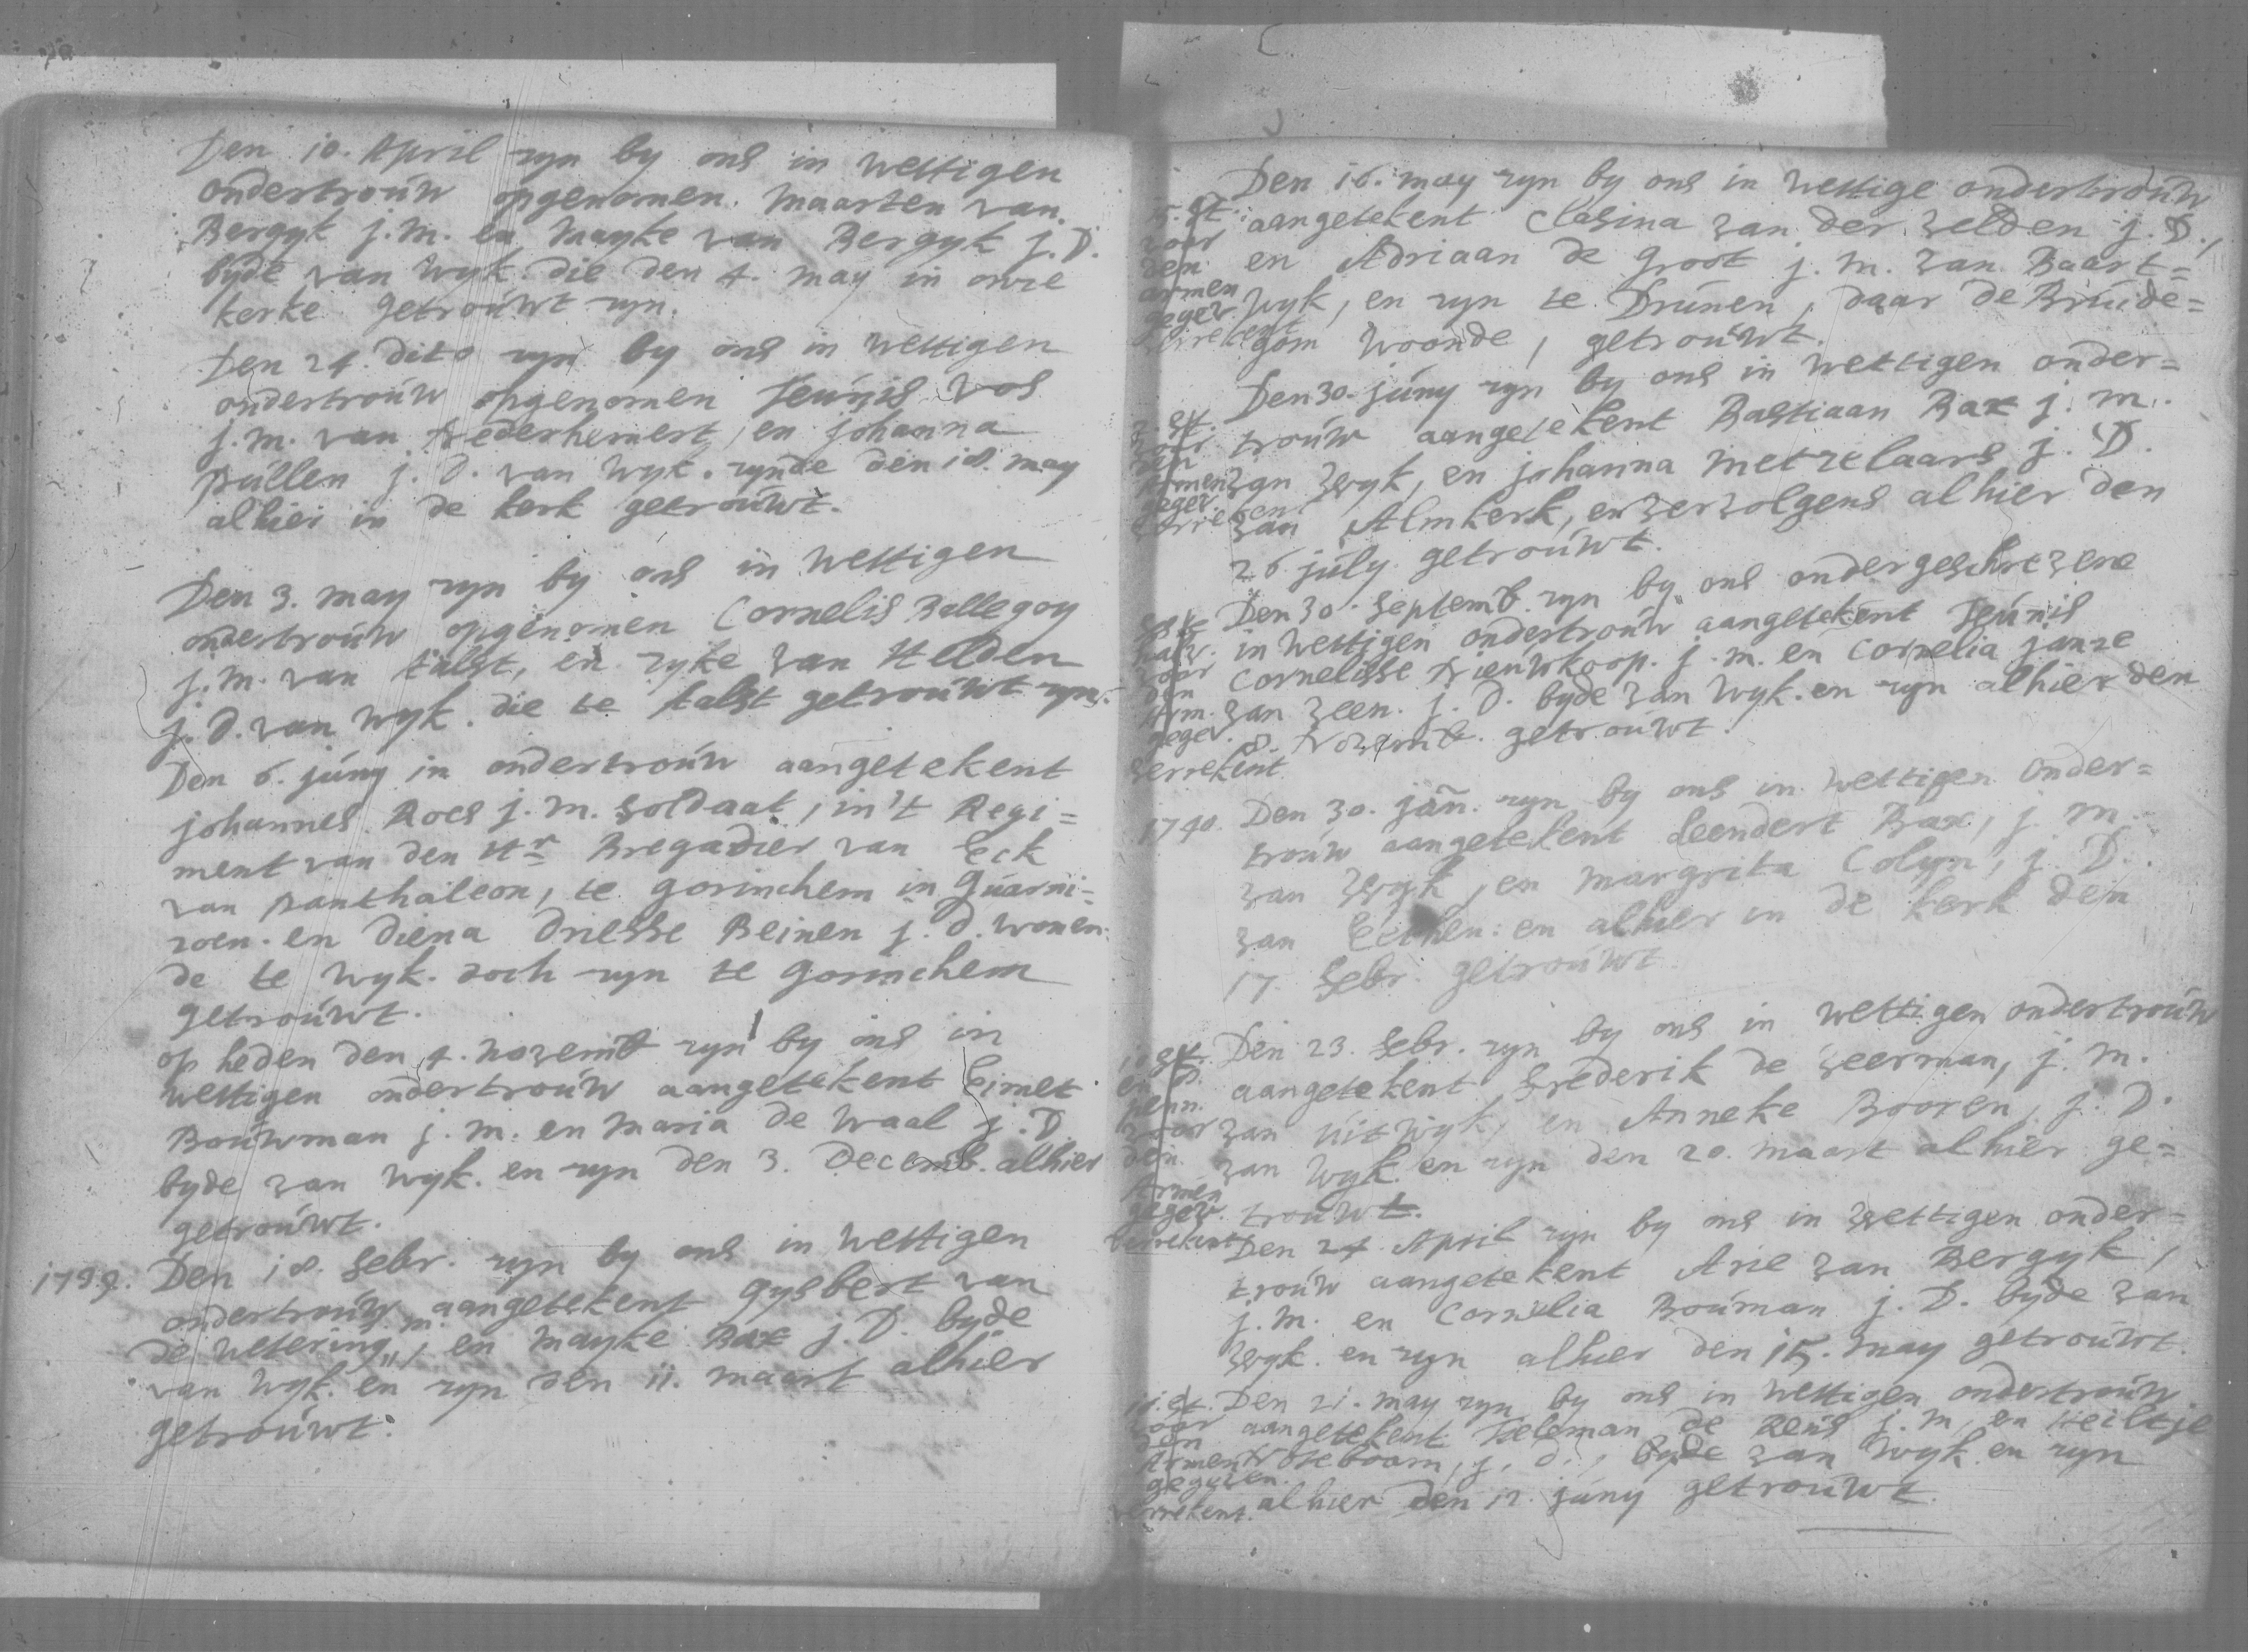 Den 10. April zyn by ons in wettigen
ondertrouw opgenomen. Maarten van
Bergyk j.m. en Mayke van Bergyk j.D.
byde van Wyk. die den 4. may in onze
kerke getrouwt zyn.
Den 24. dito zyn by ons in wettigen
ondertrouw opgenomen Teunis vos
j.m. van Nederhemert, en johanna
Pullen j.d. van Wyk. zynde den 18. may
alhier in de kerk getrouwt.
Den 3. may zyn by ons in wettigen
ondertrouw opgenomen Cornelis Ballegoy
j.m. van Aalst, en zyke van Helden
j.d. van Wyk. die te Aalst getrouwt zyn.
Den 6. juny in ondertrouw aangetekent
johannes Roes j.m. soldaat, in't Regi=
ment van den Hr Bregadier van Eck
van Panthaleon, te gorinchem in Guarni=
zoen. en diena driesse Reinen j.d. wonen
de te Wyk. doch zyn te gorinchem
getrouwt.
op heden den 4. novemb zyn by ons in
wettigen ondertrouw aangetekent Eimet
Bouwman j.m. en Maria de Waal j.D.
byde van Wyk. en zyn den 3. Decemb. alhier
getrouwt.
1739. Den 18. febr. zyn by ons in wettigen
ondertrouw aangetekent gysbert van
de wetering j.m., en Mayke Bax j.D. byde
van Wyk. en zyn den 11. maart alhier
getrouwt.
Den 16. may zyn by ons in wettige ondertrouw
aangetekent Clasina van der velden j.D.,
en Adriaan de groot j.m. van Baart=
wyk, en zyn te Drunen, daar de Bruide=
gom woonde, getrouwt.
15. st.
voor
den
armen
gegev.
verrekent
Den 30. juny zyn by ons in wettigen onder=
trouw aangetekent Bastiaan Bax j.m.
van Wyk, en johanna Metzelaars j.D.
van Almkerk, en vervolgens alhier den
26 july. getrouwt.
st.
voor
den
Armen
gegev.
Den 30. septemb. zyn by ons ondergeschrevene
in wettigen ondertrouw aangetekent Teunis
Cornelisse Nieuwkoop. j.m. en Cornelia janze
van veen. j.d. byde van Wyk. en zyn alhier den
8. Novemb. getrouwt.
voor
den
Arm.
gegev.
verrekent
1740. Den 30. jan. zyn by ons in wettigen onder=
trouw aangetekent Leendert Bax, j.m.
van Wyk, en Margrita Colyn, j.D.
van Eethen: en alhier in de kerk den
17. febr. getrouwt.
Den 23. febr. zyn by ons in wettigen ondertrouw
aangetekent frederik de veerman, j.m.
van uitwyk, en Anneke Booren, j.D.
van Wyk. en zyn den 20. maart alhier ge=
trouwt.
10 st.
en
penn.
voor
den
Armen
gegev.
verrekent
Den 24 April zyn by ons in wettigen onder=
trouw aangetekent Arie van Bergyk,
j.m. en Cornelia Bouman j.D. byde van
Wyk. en zyn alhier den 15. may getrouwt.
Den 21. may zyn by ons in wettigen ondertrouw
aangetekent Teleman de Reus j.m, en Heiltje
Noteboom, j.d., byde van Wyk. en zyn
alhier den 12. juny getrouwt.
st.
voor
den
Armen
gegeven.
verrekent.